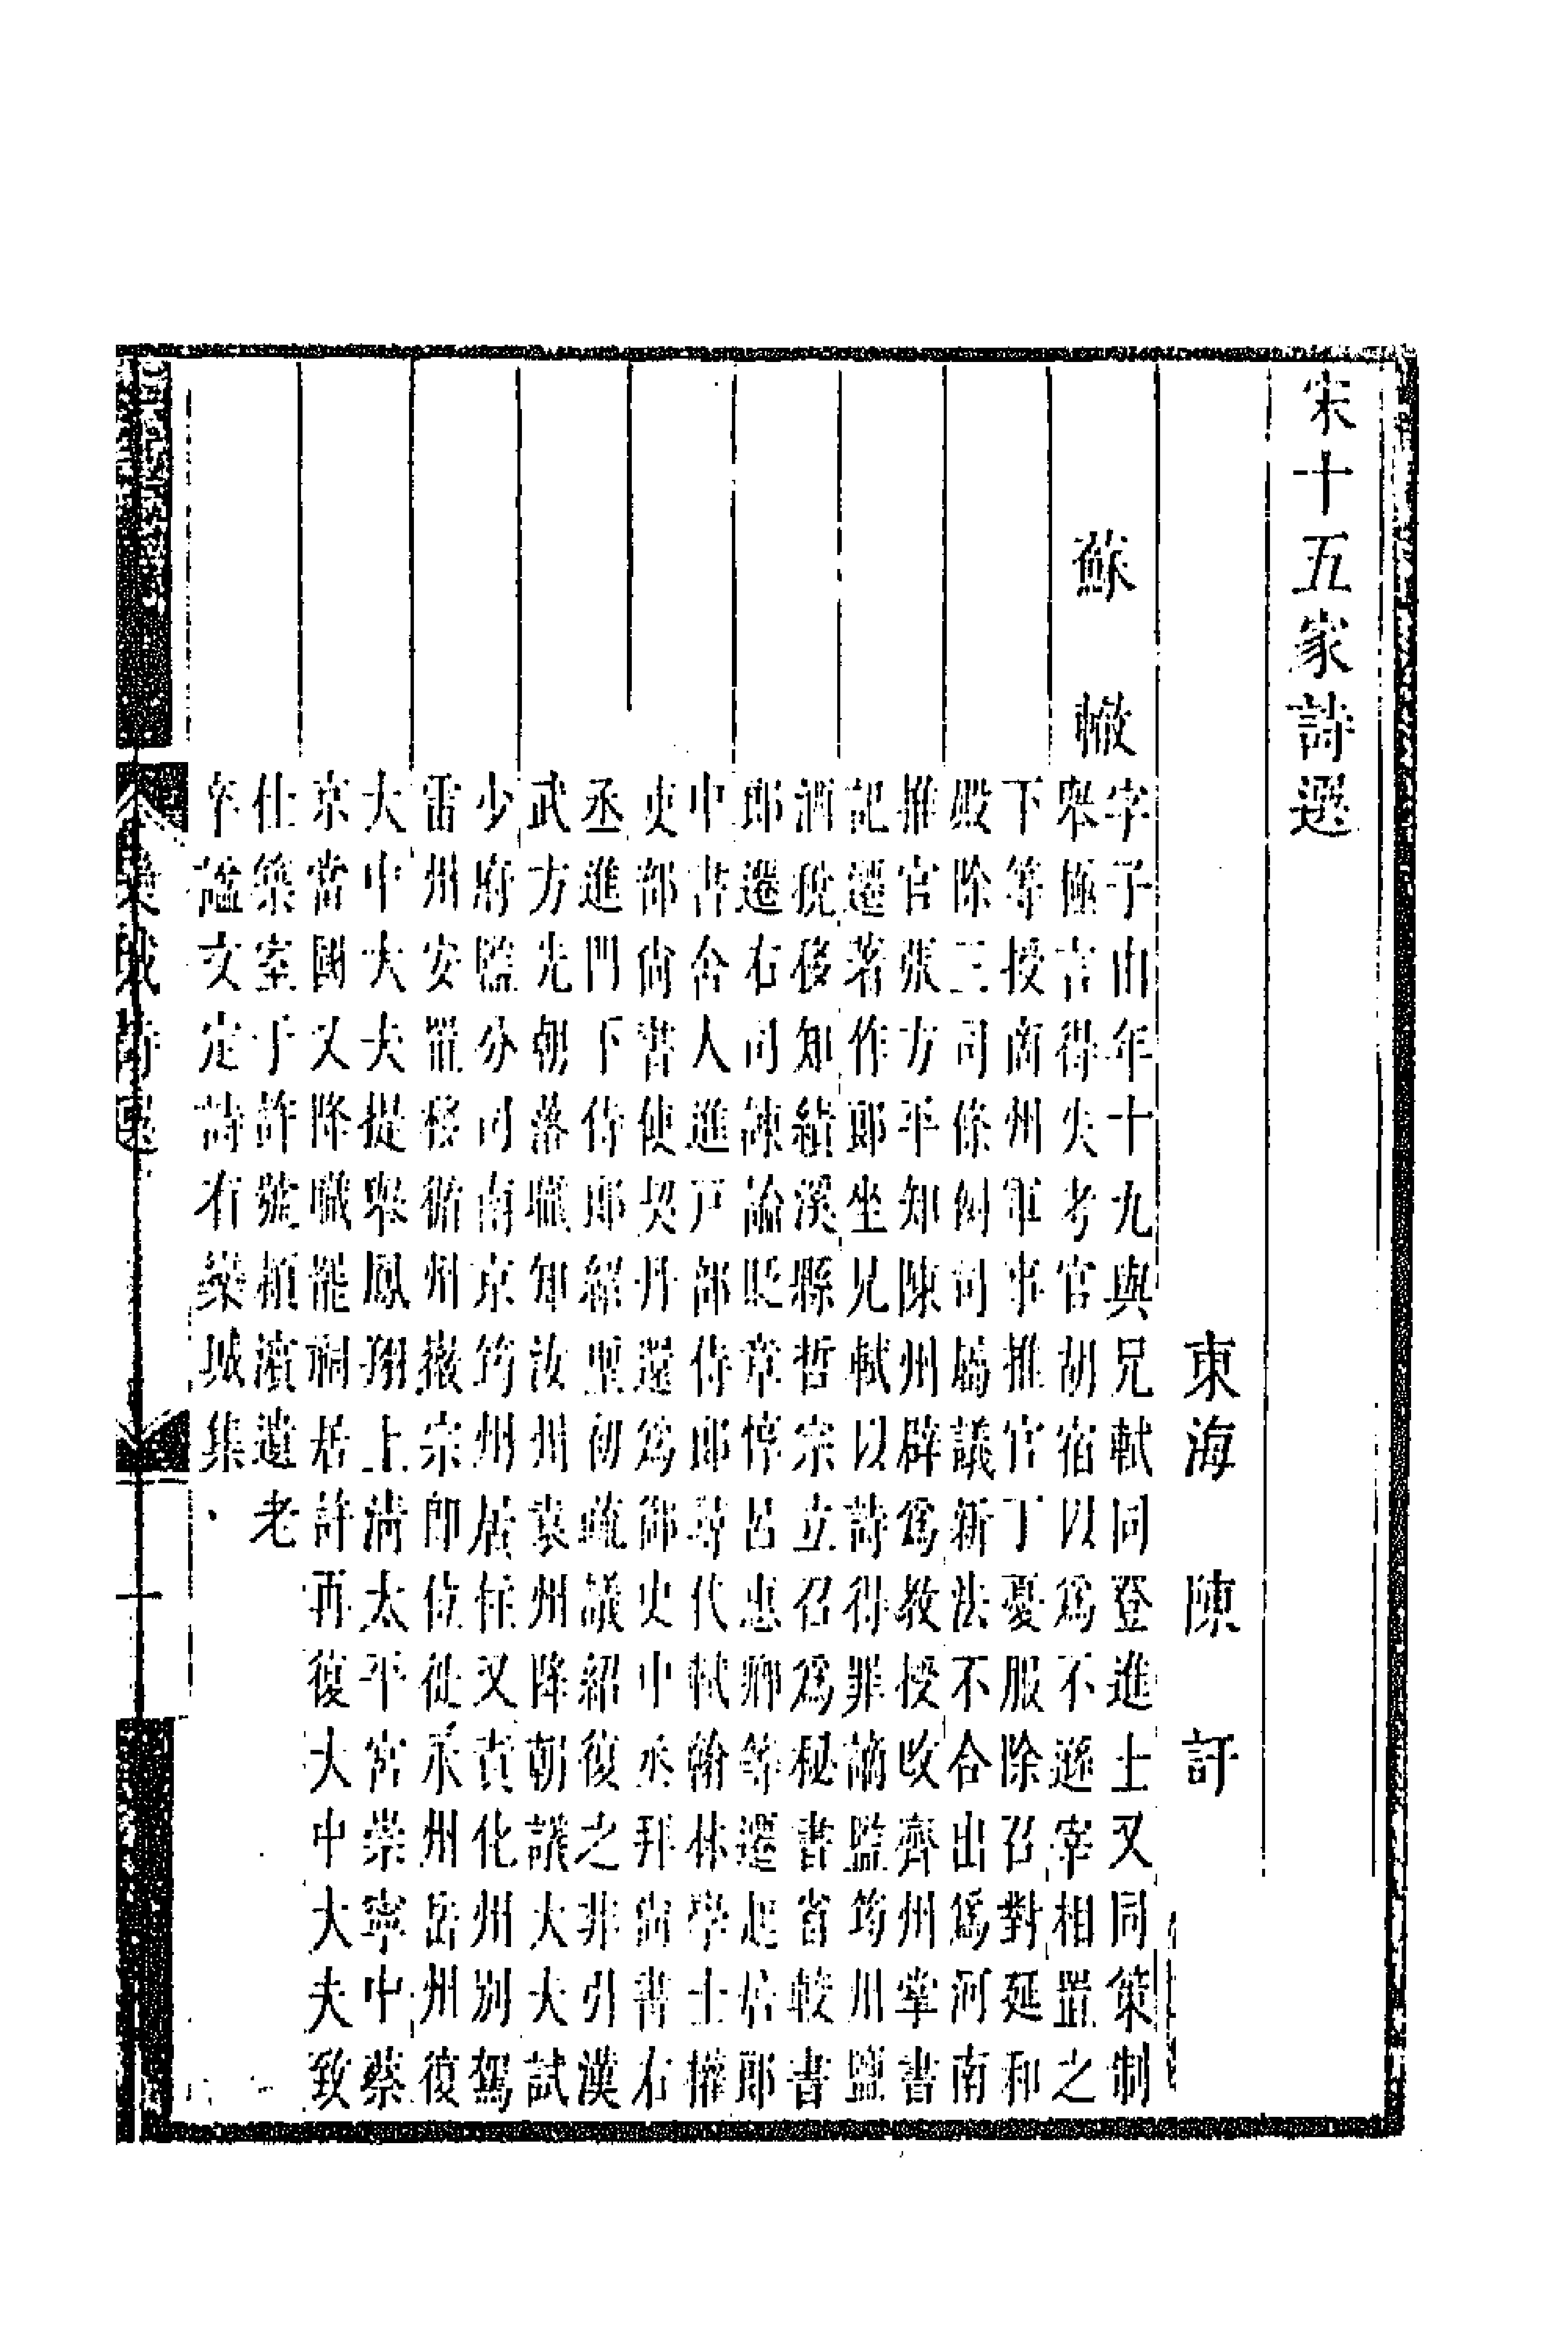 宋十五家詩選
東海陳訏
蘇轍
字子由年十九與兄軾同登進士又同策制
舉極言得失考官胡宿以爲不遜宰相置之
下等授商州軍事推官丁憂服除召對延和
殿除三司條例司屬議新法不合出爲河南
推官張方平知陳州辟爲教授改齊州掌書
記遷著作郎坐兄軾以詩得罪謫監筠州鹽
酒稅移知績溪縣哲宗立召爲秘書省校書
郎遷右司諫論貶章惇呂惠卿等遷起居郎
中書舍人進戸部侍郎尋代軾翰林學士權
吏部尚書使契丹還爲御史中丞拜尚書右
丞進門下侍郎紹聖初疏議紹復之非引漢
武方先朝落職知汝州袁州降朝議大夫試
少府監分司南京筠州居住又責化州別駕
雷州安置移循州徽宗即位徙永州岳州復
大中大夫提舉鳳翔上清太平宮崇寧中蔡
京當國又降職罷祠居許再復大中大夫致
仕築室于許號潁濱遺老
卒諡文定詩有欒城集
欒城詩選
一